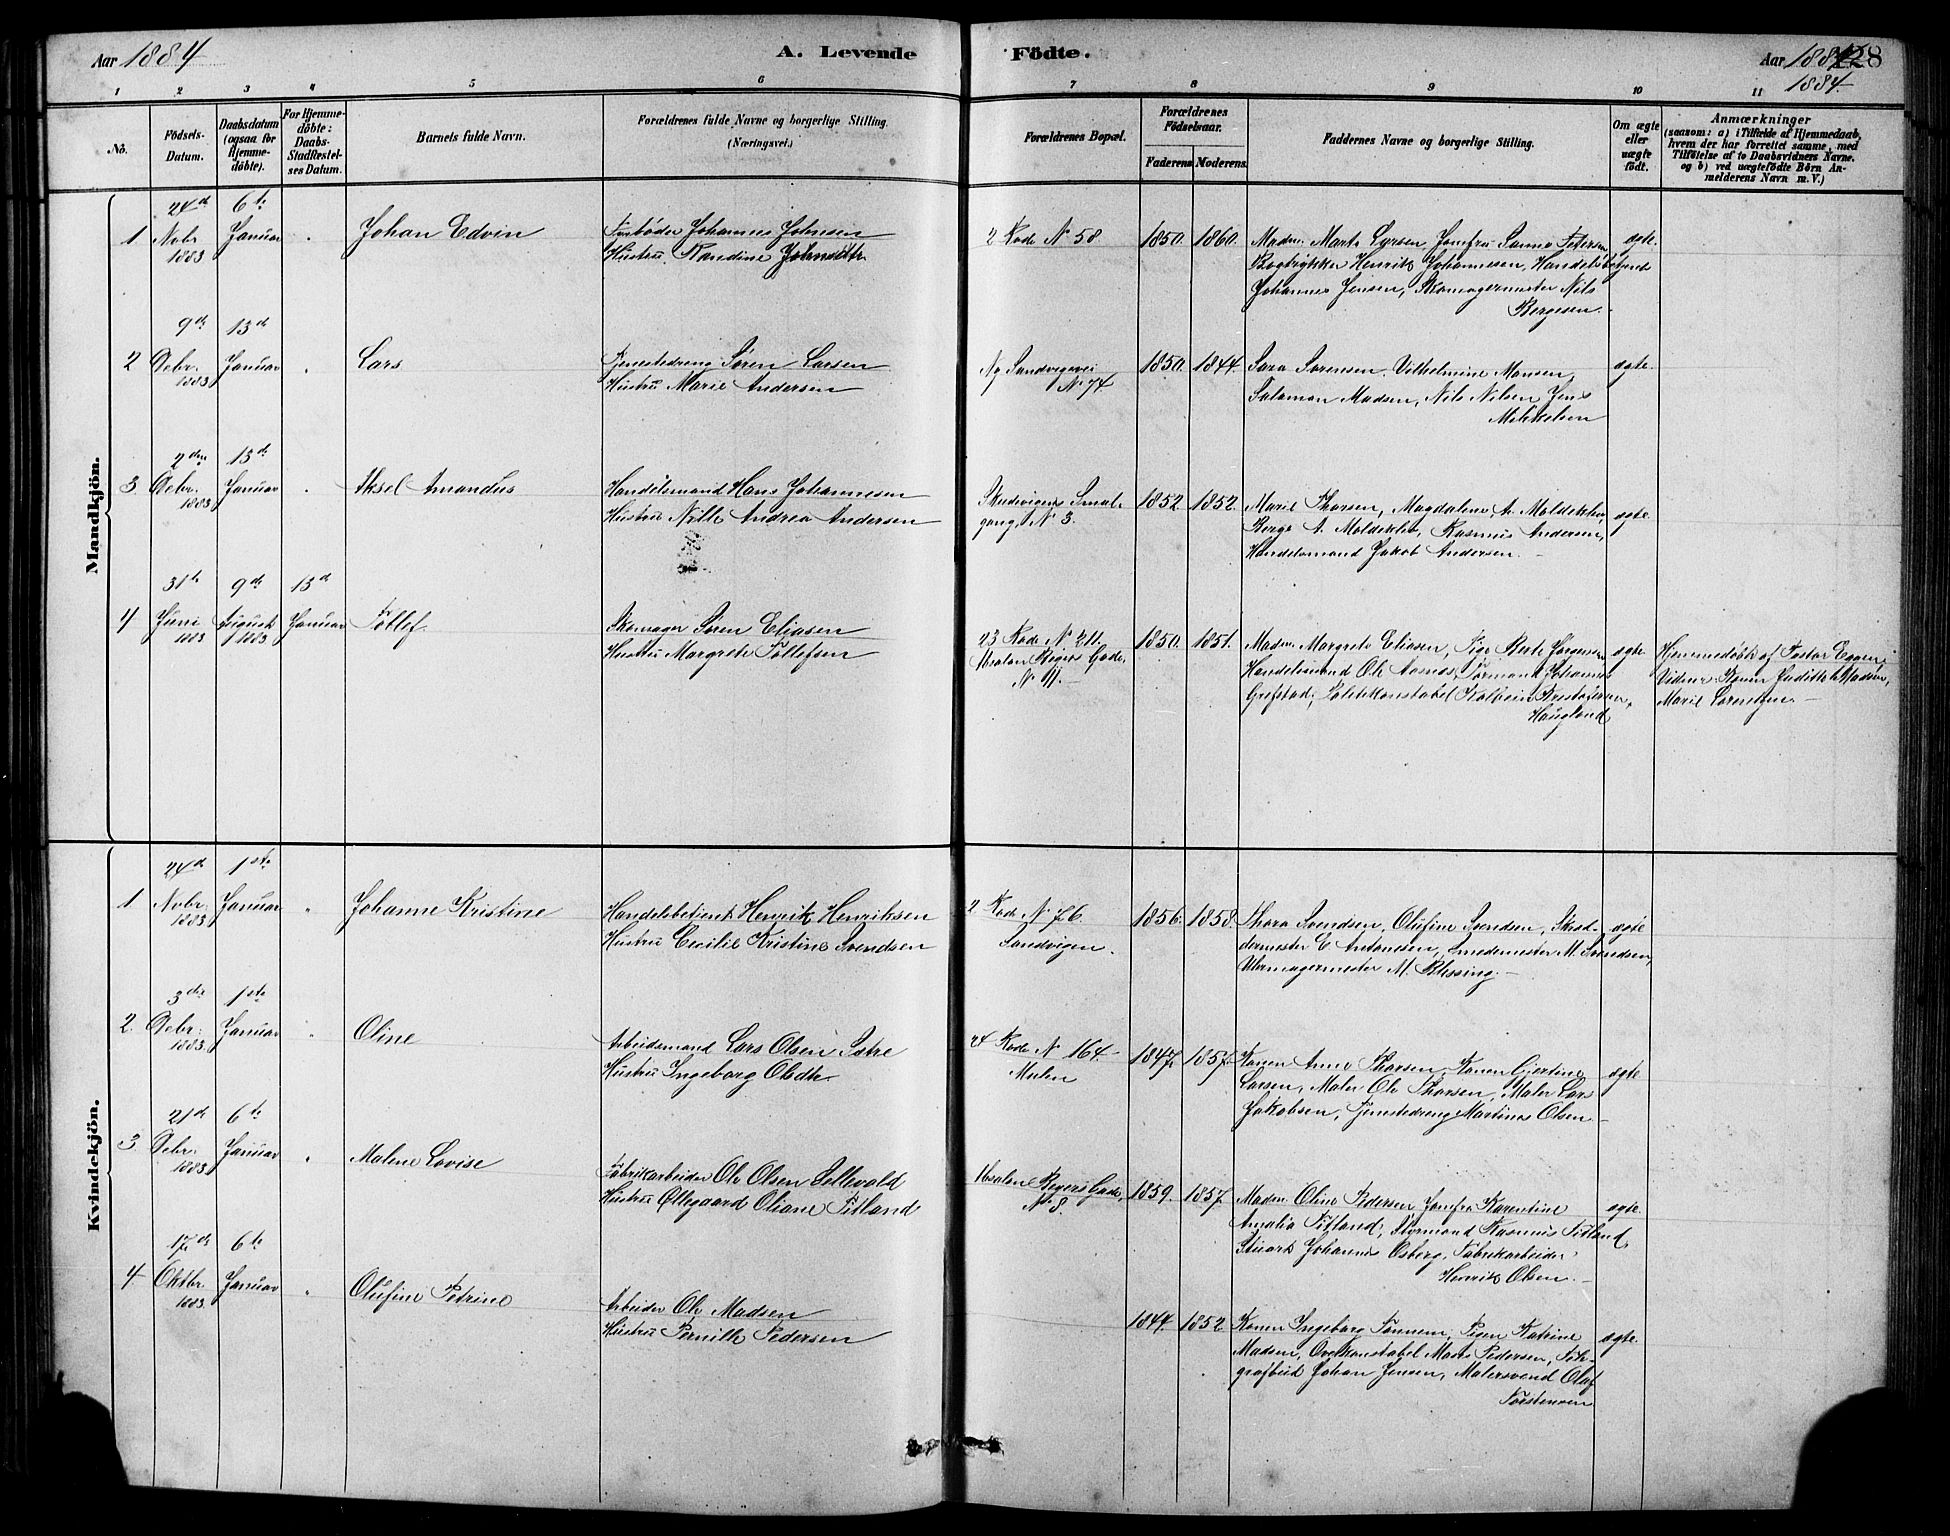 Aar 1884 A. Levende Födte. Aar 1884 128
1884.
1 2 3 4 5 6 7 8 9 10 11
No.
Födsels-Datum.
Daabsdatum (ogsaa for Hjemme-döbte).
For Hjemme-döbte: Daabs-Stadfæstel-ses Datum.
Barnets fulde Navn.
Forældrenes fulde Navne og borgerlige Stilling.
(Næringsvei.)
Forældrenes Bopæl.
Forældrenes Födselsaar.
Faderens. Moderens.
Faddernes Navne og borgerlige Stilling.
Om ægte eller uægte födt.
Anmærkninger
(saasom: a) i Tilfælde af Hjemmedaab,
hvem der har forrettet samme, med
Tilföielse af to Daabsvidners Navne,
og b) ved uægtefödte Börn An-
melderens Navn m. V.)
Mandkjön.
1 24d Nobr. 1883 6te Januar " Johan Edvin
Johannes Johnsen
Hustru Nandine Johnsdtr
2 Rode N 58 1850. 1860.
Madm. Marte Larsen, Jomfru Sanna Petersen
Bogtrykker Henrik Johannesen, Handelsbetjent
Johannes Jensen, Skomagermester Nils
Bergesen.
ægte.
2 9de Debr. 1883 13d Januar " Lars
Tjenestedreng Søren Larsen
Hustru Marie Andersen
Ny Sandvigsvei
N 74
1850. 1844.
Sara Sørensen, Vilhelmine Monsen,
Salamon Madsen, Nils Nilsen, Jens
Mikkelsen
ægte.
3 2den Debr. 1883 13de Januar " Aksel Amandus
Handelsmand Hans Johannesen
Hustru Nille Andrea Andersen
Skudevigens Smal-
gang, N 3.
1852. 1852.
Marie Thorsen, Magdalene A. Moldeklev,
Berge A. Moldeklev, Rasmus Andersen,
Handelsmand Jakob Andersen.
ægte.
4 31te Juni 1883 9de August 1883 13d Januar Tollef.
Skomager Søren Eliasen
Hustru Margrete Tollefsen
23 Rode N 211.
Absalon Beyers Gade,
N 11.
1850. 1851.
Madm. Margrete Eliasen, Pige Berte Jørgensen
Handelsmand Ole Aasnes, Formand Johannes
Grefstad, Politikonstabel Kolbein Kristofersen
Haugland
ægte
Hjemmedøbt af Pastor
Vidner Konen Juditthe Madsen,
Marie Lorentzen.
Kvindekjön.
1 24d Nobr. 1883 1ste Januar " Johanne Kristine
Handelsbetjent Henrik Henriksen
Hustru Cecilie Kristine Svendsen
2 Rode N 76.
Sandvigen.
1856. 1858.
Thora Svendsen, Olufine Svendsen, Skræd-
dermester E. Antonesen, Smedemester M. Svendsen,
Uhrmagermester M. Blessing.
ægte
2 3die Debr. 1883. 1ste Januar " Oline
Arbeidsmand Lars Olsen Sætre
Hustru Ingeborg Olsdtr.
24 Rode N 164
Mulen
1847. 1857.
Konen Anna Thorsen, Konen Gjertine
Larsen, Maler Ole Thorsen, Maler Lars
Jakobsen, Tjenestedreng Martines Olsen.
ægte
3 21de Debr. 1883. 6te Januar " Malene Lovise
Fabrikarbeider Ole Olsen Sellevold
Hustru Øllegaard Oliane Titland
Absalon Beyers Gade,
N 8.
1859. 1857.
Madm. Oline Pedersen, Jomfru Karentine
Amalia Titland, Styrmand Rasmus Titland,
Stuart Johannes Osberg, Fabrikarbeider
Henrik Olsen.
ægte.
4 17de Oktbr. 1883. 6te Januar " Olufine Petrine
Arbeider Ole Madsen
Hustru Pernille Pedersen
1844. 1852.
Konen Ingeborg Tønnesen, Pigen Katrine
Madsen, Overkonstabel Mons Pedersen, Tele-
grafbud Johan Jensen, Malersvend Olaf
Torstensen
ægte.